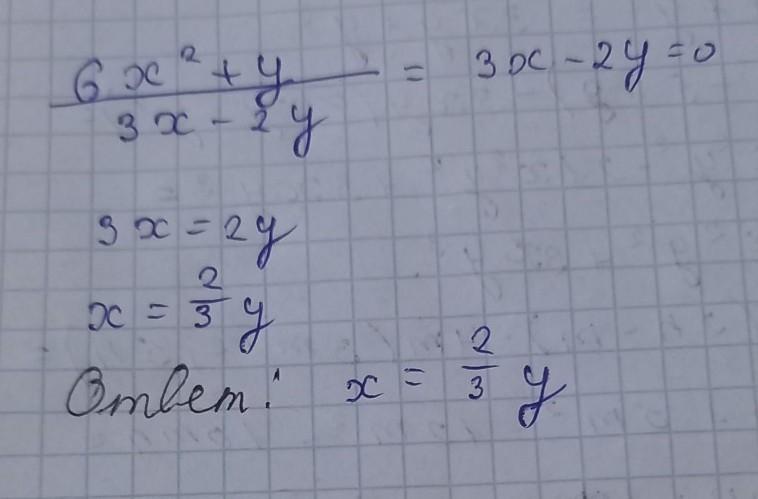 6x² + y / 3x - 2y = 3x - 2y = 0
3x = 2y
x = 2/3 y
Ответ: x = 2/3 y